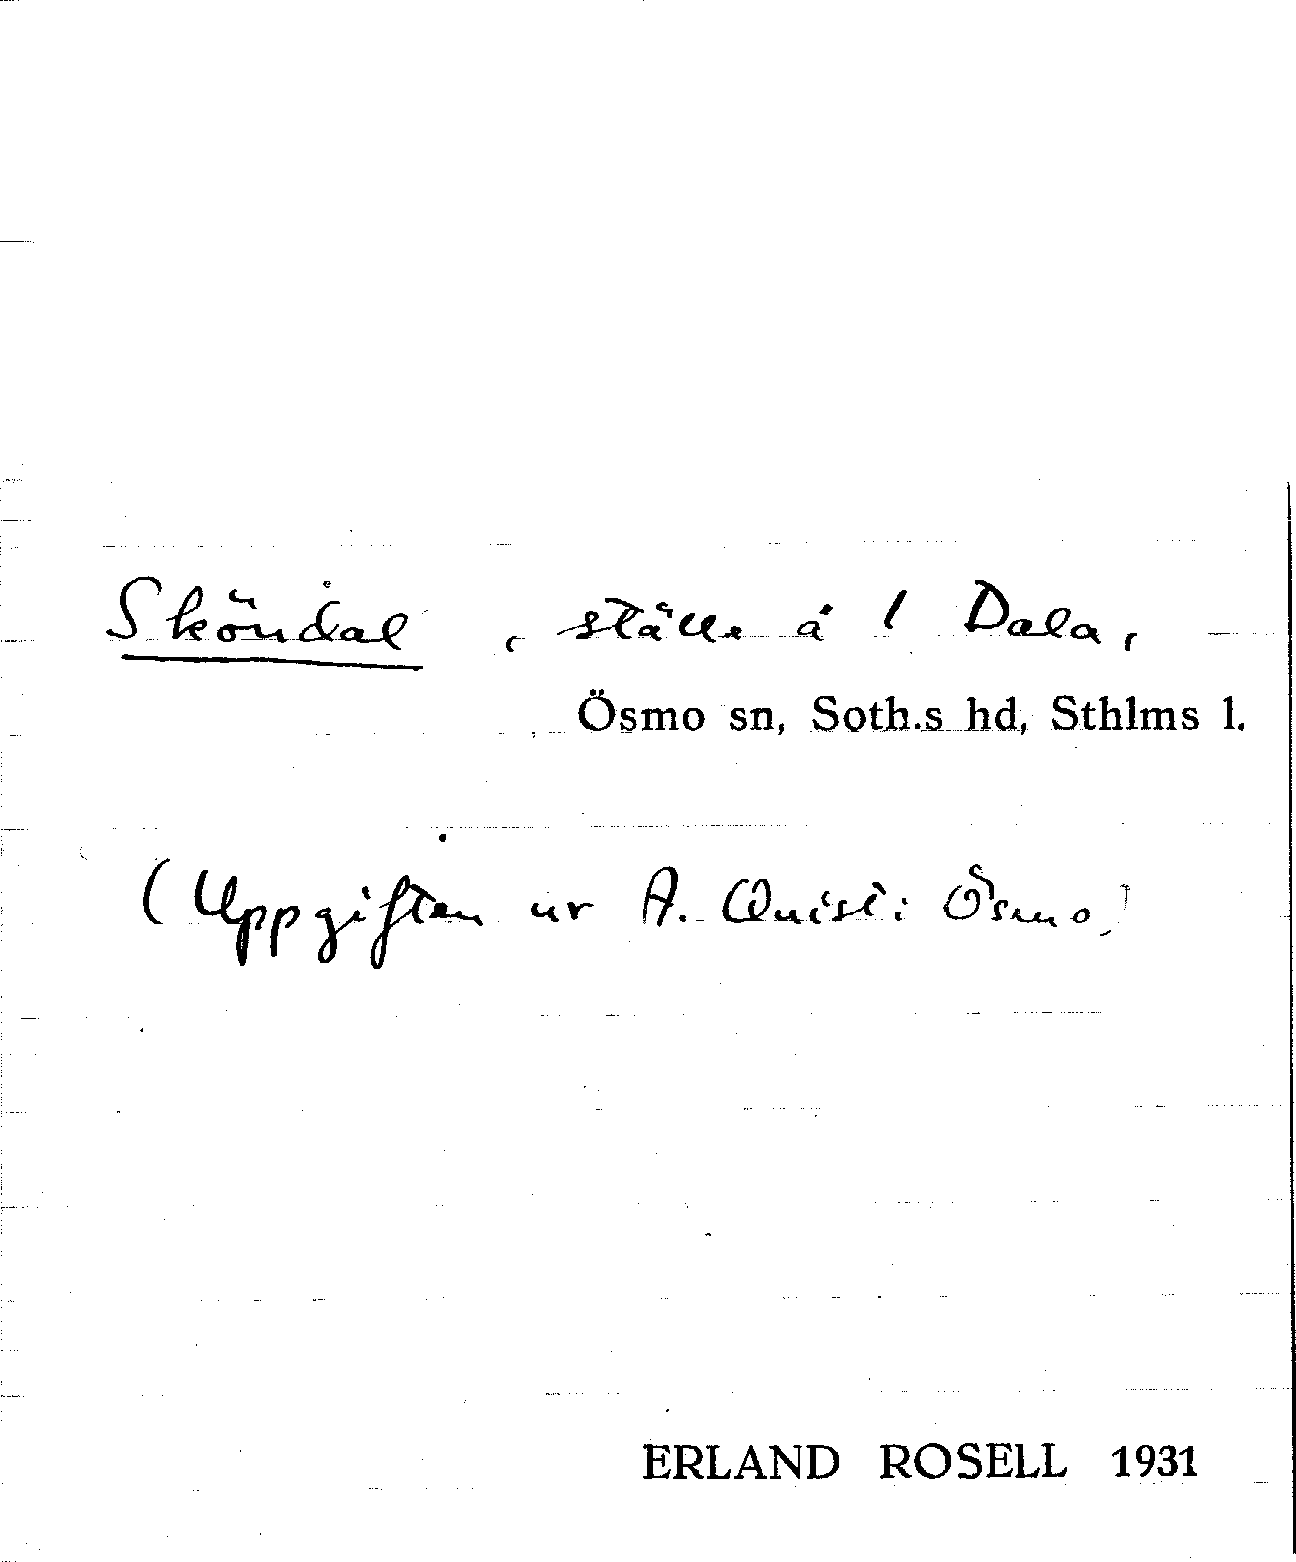 Sköndal, ställe å 1 Dala,
Ösmo sn, Soth.s hd, Sthlms l.
(Uppgiften ur A. Quist: Ösmo)
ERLAND ROSELL 1931